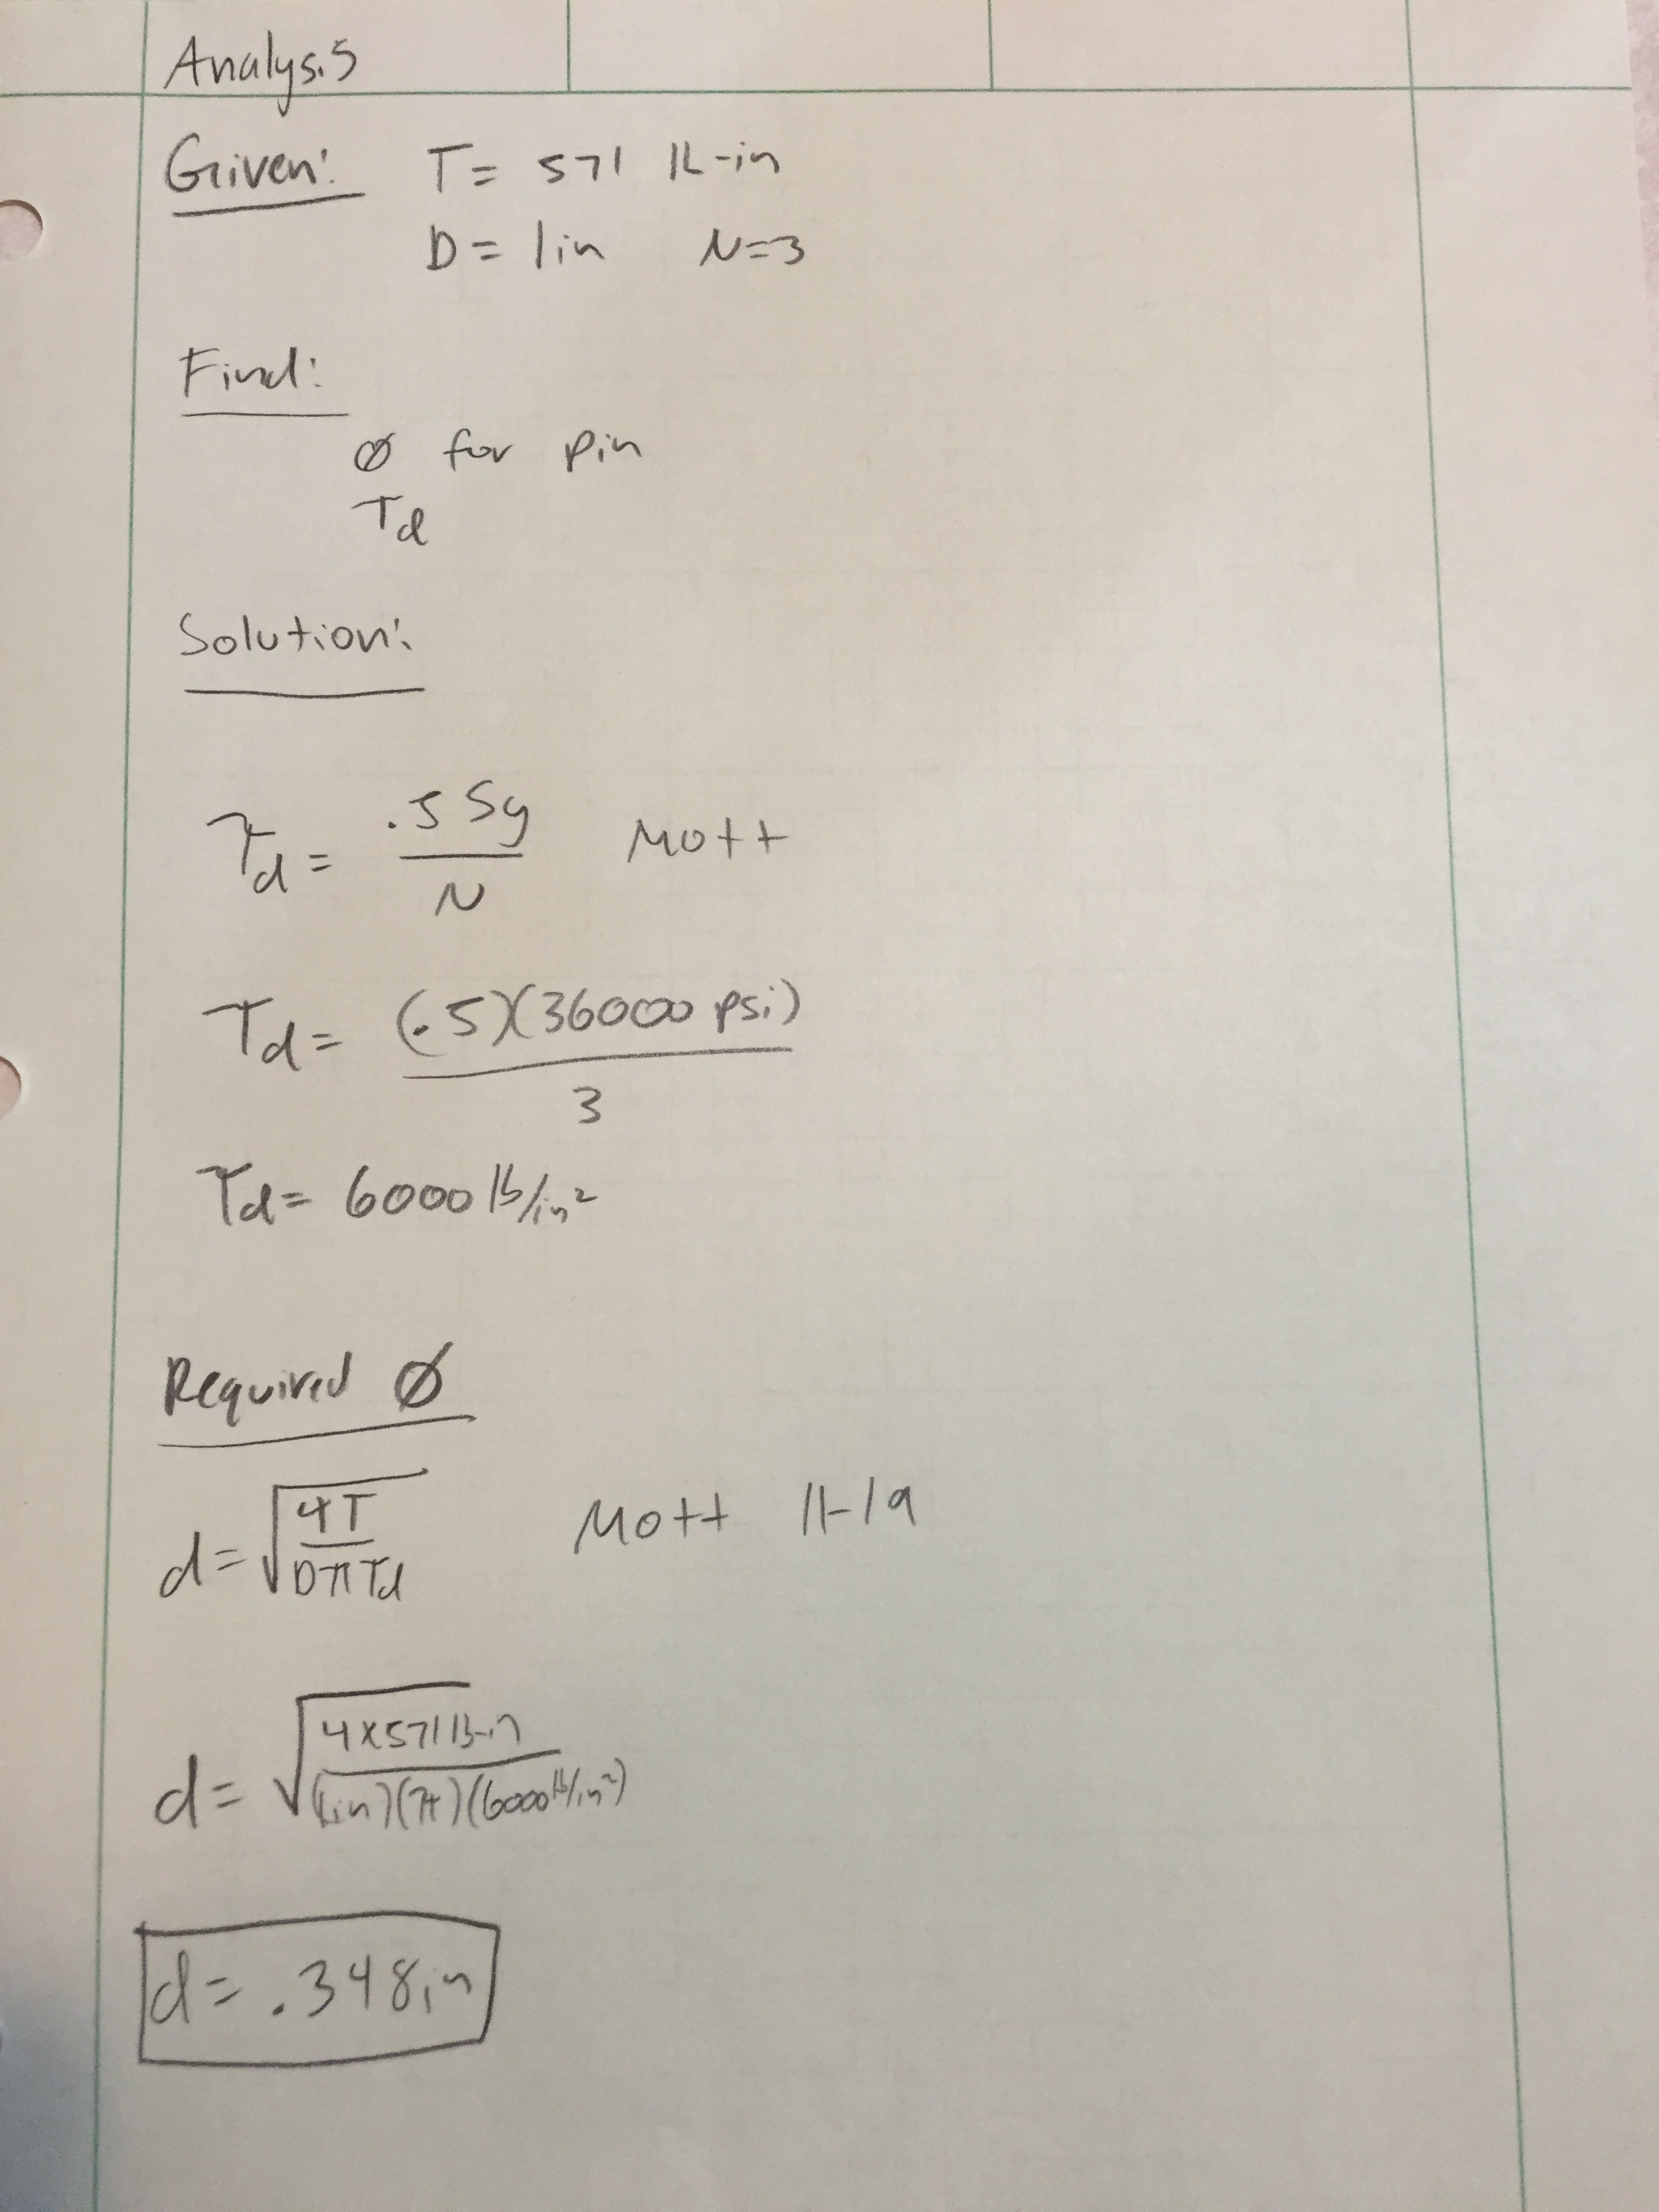 Analysis
Given: T = 571 lb-in
D = 1in N=3
Find:
Ø for pin
τd
Solution:
τd = .5 Sy / N Mott
τd = (.5)(36000 psi) / 3
τd = 6000 lb/in²
Required Ø
d = √(4T / Dπτd) Mott 11-19
d = √(4x571 lb-in / (1in)(π)(6000 lb/in²))
d = .348in